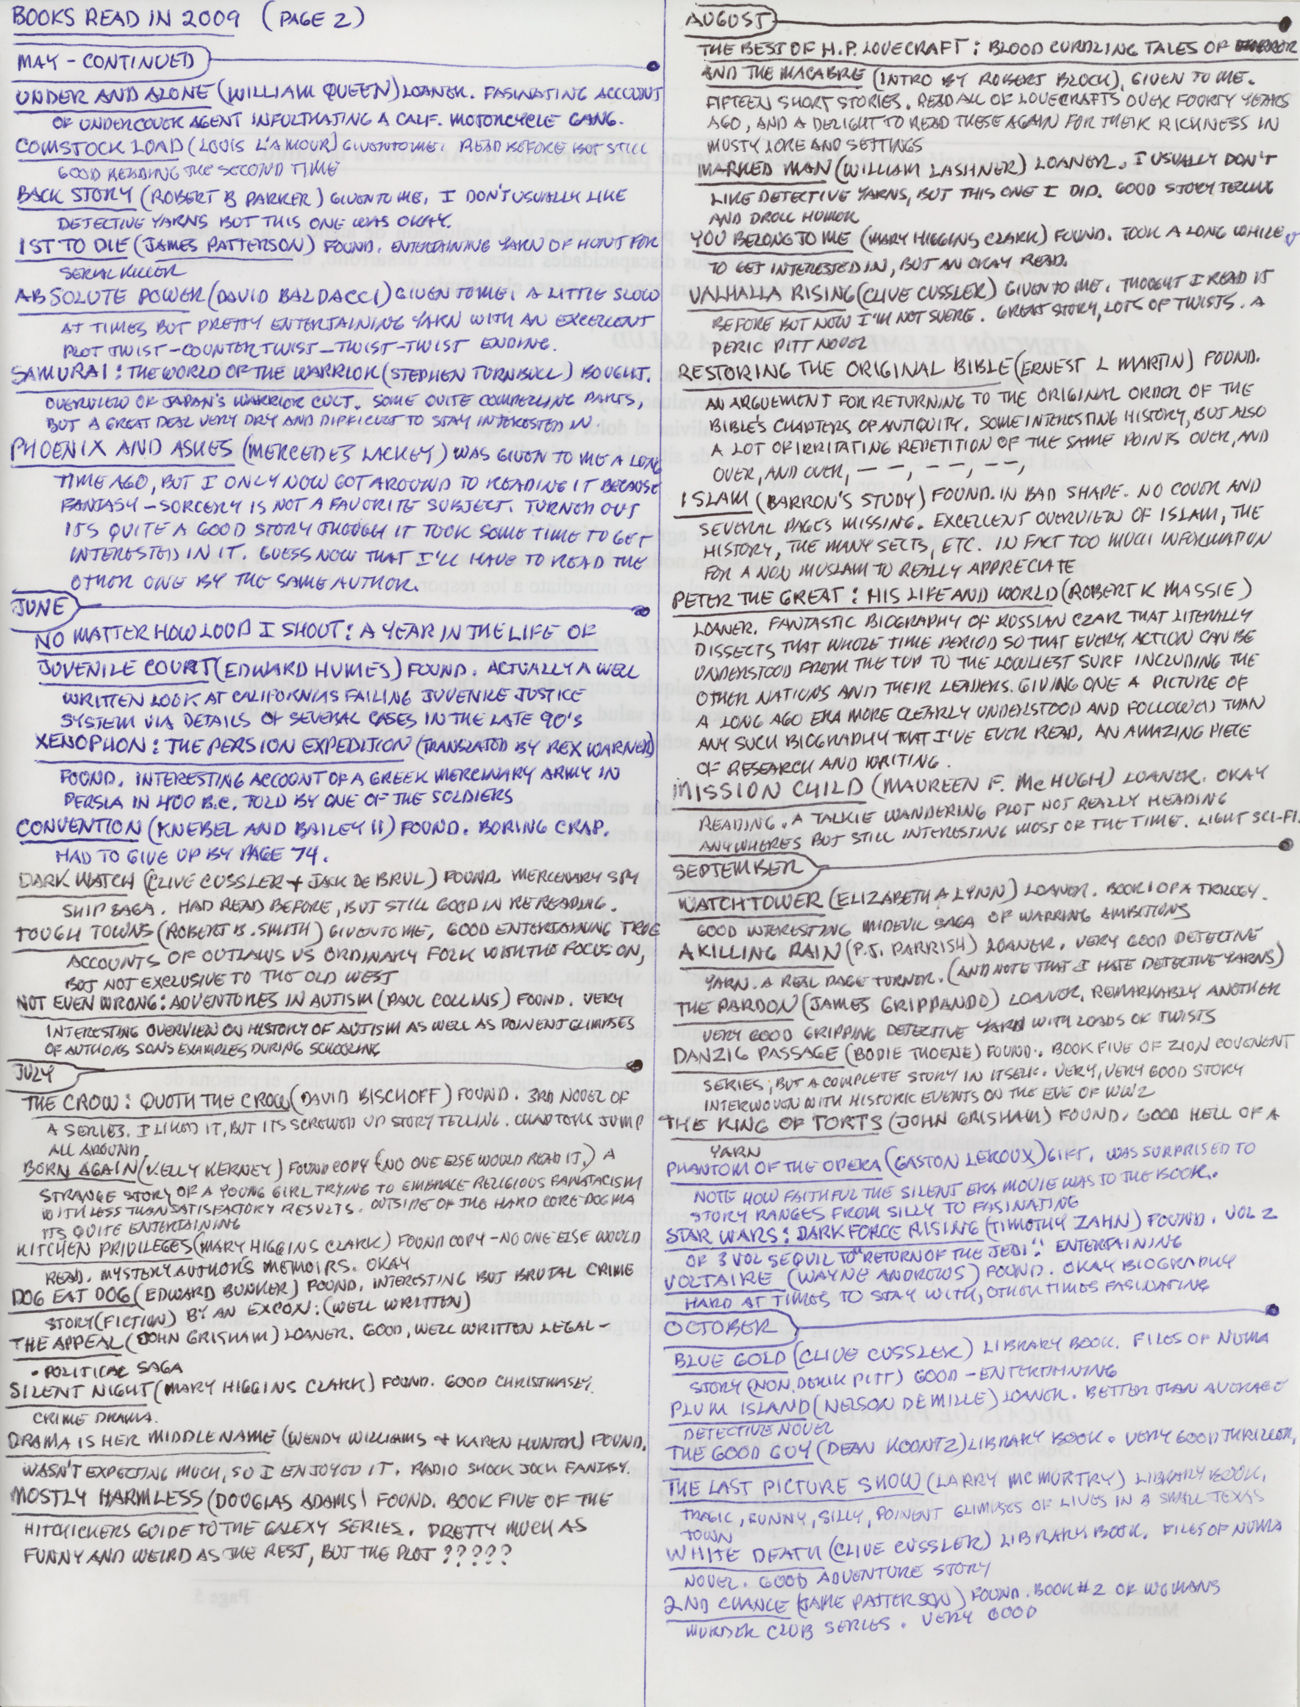 BOOKS READ IN 2009 (PAGE 2)
MAY - CONTINUED
UNDER AND ALONE (WILLIAM QUEEN) LOANER. FASINATING ACCOUNT
OF UNDERCOVER AGENT INFULTRATING A CALF. MOTORCYCLE GANG.
COMSTOCK LOAD (LOUIS L'AMOUR) GIVEN TO ME. READ BEFORE BUT STILL
GOOD READING THE SECOND TIME
BACK STORY (ROBERT B PARKER) GIVEN TO ME, I DON'T USUALLY LIKE
DETECTIVE YARNS BUT THIS ONE WAS OKAY.
1ST TO DIE (JAMES PATTERSON) FOUND. ENTERTAINING YARN OF HUNT FOR
SERIAL KILLER
ABSOLUTE POWER (DAVID BALDACCI) GIVEN TO ME. A LITTLE SLOW
AT TIMES BUT PRETTY ENTERTAINING YARN WITH AN EXCELLENT
PLOT TWIST-COUNTER TWIST-TWIST-TWIST ENDING.
SAMURAI: THE WORLD OF THE WARRIOR (STEPHEN TURNBULL) BOUGHT.
OVERVIEW OF JAPAN'S WARRIOR CULT. SOME QUITE COMPELLING PARTS,
BUT A GREAT DEAL VERY DRY AND DIFFICULT TO STAY INTERESTED IN.
PHOENIX AND ASHES (MERCEDEZ LACKEY) WAS GIVEN TO ME A LONG
TIME AGO, BUT I ONLY NOW GOT AROUND TO READING IT BECAUSE
FANTASY-SORCERY IS NOT A FAVORITE SUBJECT. TURNED OUT
ITS QUITE A GOOD STORY THOUGH IT TOOK SOME TIME TO GET
INTERESTED IN IT. GUESS NOW THAT I'LL HAVE TO READ THE
OTHER ONE BY THE SAME AUTHOR.
JUNE
NO MATTER HOW LOUD I SHOUT: A YEAR IN THE LIFE OF
JUVENILE COURT (EDWARD HUMES) FOUND. ACTUALLY A WELL
WRITTEN LOOK AT CALIFORNIAS FAILING JUVENILE JUSTICE
SYSTEM VIA DETAILS OF SEVERAL CASES IN THE LATE 90'S
XENOPHON: THE PERSION EXPEDITION (TRANSLATED BY REX WARNER)
FOUND. INTERESTING ACCOUNT OF A GREEK MERCINARY ARMY IN
PERSIA IN 400 B.C. TOLD BY ONE OF THE SOLDIERS
CONVENTION (KNEBEL AND BAILEY II) FOUND. BORING CRAP.
HAD TO GIVE UP BY PAGE 74.
DARK WATCH (CLIVE CUSSLER + JACK DE BRUL) FOUND. MERCENARY SPY
SHIP SAGA. HAD READ BEFORE, BUT STILL GOOD IN REREADING.
TOUGH TOWNS (ROBERT B. SMITH) GIVEN TO ME, GOOD ENTERTAINING TRUE
ACCOUNTS OF OUTLAWS VS ORDINARY FOLK WITH THE FOCUS ON,
BUT NOT EXCLUSIVE TO THE OLD WEST
NOT EVEN WRONG: ADVENTURES IN AUTISM (PAUL COLLINS) FOUND. VERY
INTERESTING OVERVIEW ON HISTORY OF AUTISM AS WELL AS POINENT GLIMPSES
OF AUTHORS SONS EXAMPLES DURING SCHOOLING
JULY
THE CROW: QUOTH THE CROW (DAVID BISCHOFF) FOUND. 3RD NOVEL OF
A SERIES. I LIKED IT, BUT ITS SCREWED UP STORY TELLING. CHAPTERS JUMP
ALL AROUND
BORN AGAIN (KELLY KERNEY) FOUND COPY (NO ONE ELSE WOULD READ IT.) A
STRANGE STORY OF A YOUNG GIRL TRYING TO EMBRACE RELIGIOUS FANATACISM
WITH LESS THAN SATISFACTORY RESULTS. OUTSIDE OF THE HARD CORE DOGMA
ITS QUITE ENTERTAINING
KITCHEN PRIVILEGES (MARY HIGGINS CLARK) FOUND COPY - NO ONE ELSE WOULD
READ. MYSTERY AUTHORS MEMOIRS. OKAY
DOG EAT DOG (EDWARD BUNKER) FOUND. INTERESTING BUT BRUTAL CRIME
STORY (FICTION) BY AN EXCON. (WELL WRITTEN)
THE APPEAL (JOHN GRISHAM) LOANER. GOOD, WELL WRITTEN LEGAL-
POLITICAL SAGA
SILENT NIGHT (MARY HIGGINS CLARK) FOUND. GOOD CHRISTMASLY.
CRIME DRAMA.
DRAMA IS HER MIDDLE NAME (WENDY WILLIAMS + KAREN HUNTER) FOUND.
WASN'T EXPECTING MUCH, SO I ENJOYED IT. RADIO SHOCK JOCK FANTASY.
MOSTLY HARMLESS (DOUGLAS ADAMS) FOUND. BOOK FIVE OF THE
HITCHICKERS GUIDE TO THE GALEXY SERIES. PRETTY MUCH AS
FUNNY AND WEIRD AS THE REST, BUT THE PLOT ?????
AUGUST
THE BEST OF H.P. LOVECRAFT: BLOOD CURDLING TALES OF HORROR
AND THE MACABRE (INTRO BY ROBERT BLOCK). GIVEN TO ME.
FIFTEEN SHORT STORIES. READ ALL OF LOVECRAFTS OVER FOORTY YEARS
AGO, AND A DELIGHT TO READ THESE AGAIN FOR THEIR RICHNESS IN
MUSTY LORE AND SETTINGS
MARKED MAN (WILLIAM LASHNER) LOANER. I USUALLY DON'T
LIKE DETECTIVE YARNS, BUT THIS ONE I DID. GOOD STORY TELLING
AND DROLL HUMOR
YOU BELONG TO ME (MARY HIGGINS CLARK) FOUND. TOOK A LONG WHILE
TO GET INTERESTED IN, BUT AN OKAY READ.
VALHALLA RISING (CLIVE CUSSLER) GIVEN TO ME. THOUGHT I READ IT
BEFORE BUT NOW I'M NOT SUERE. GREAT STORY, LOTS OF TWISTS. A
DERIC PITT NOVEL
RESTORING THE ORIGINAL BIBLE (ERNEST L MARTIN) FOUND.
AN ARGUEMENT FOR RETURNING TO THE ORIGINAL ORDER OF THE
BIBLE'S CHAPTERS OF ANTIQUITY. SOME INTERESTING HISTORY, BUT ALSO
A LOT OF IRRITATING REPETITION OF THE SAME POINTS OVER, AND
OVER, AND OVER, — —, — —, — —,
ISLAM (BARRON'S STUDY) FOUND. IN BAD SHAPE. NO COVER AND
SEVERAL PAGES MISSING. EXCELLENT OVERVIEW OF ISLAM, THE
HISTORY, THE MANY SECTS, ETC. IN FACT TOO MUCH INFORMATION
FOR A NON MUSLAM TO REALLY APPRECIATE
PETER THE GREAT: HIS LIFE AND WORLD (ROBERT K MASSIE)
LOANER. FANTASTIC BIOGRAPHY OF RUSSIAN CZAR THAT LITERALLY
DISSECTS THAT WHOLE TIME PERIOD SO THAT EVERY ACTION CAN BE
UNDERSTOOD FROM THE TOP TO THE LOWLIEST SURF INCLUDING THE
OTHER NATIONS AND THEIR LEADERS. GIVING ONE A PICTURE OF
A LONG AGO ERA MORE CLEARLY UNDERSTOOD AND FOLLOWED THAN
ANY SUCH BIOGRAPHY THAT I'VE EVER READ. AN AMAZING PIECE
OF RESEARCH AND WRITING.
MISSION CHILD (MAUREEN F. McHUGH) LOANER. OKAY
READING. A TALKIE WANDERING PLOT NOT REALLY HEADING
ANYWHERES BUT STILL INTERESTING MOST OF THE TIME. LIGHT SCI-FI.
SEPTEMBER
WATCHTOWER (ELIZABETH A LYNN) LOANER. BOOK 1 OF A TRILOGY.
GOOD INTERESTING MIDEVIL SAGA OF WARRING AMBITIONS
A KILLING RAIN (P.J. PARRISH) LOANER. VERY GOOD DETECTIVE
YARN. A REAL PAGE TURNER. (AND NOTE THAT I HATE DETECTIVE YARNS)
THE PARDON (JAMES GRIPPANDO) LOANER. REMARKABLY ANOTHER
VERY GOOD GRIPPING DETECTIVE YARN WITH LOADS OF TWISTS
DANZIG PASSAGE (BODIE THOENE) FOUND. BOOK FIVE OF ZION COVENENT
SERIES, BUT A COMPLETE STORY IN ITSELF. VERY, VERY GOOD STORY
INTERWOVEN WITH HISTORIC EVENTS ON THE EVE OF WW2
THE KING OF TORTS (JOHN GRISHAM) FOUND. GOOD HELL OF A
YARN
PHANTOM OF THE OPERA (GASTON LEROUX) GIFT. WAS SURPRISED TO
NOTE HOW FAITHFUL THE SILENT ERA MOVIE WAS TO THE BOOK.
STORY RANGES FROM SILLY TO FASINATING
STAR WARS: DARK FORCE RISING (TIMOTHY ZAHN) FOUND. VOL 2
OF 3 VOL SEQUIL TO "RETURN OF THE JEDI". ENTERTAINING
VOLTAIRE (WAYNE ANDREWS) FOUND. OKAY BIOGRAPHY
HARD AT TIMES TO STAY WITH, OTHER TIMES FASINATING
OCTOBER
BLUE GOLD (CLIVE CUSSLER) LIBRARY BOOK. FILES OF NUMA
STORY (NON. DERIK PITT) GOOD - ENTERTAINING
PLUM ISLAND (NELSON DE MILLE) LOANER. BETTER THAN AVERAGE
DETECTIVE NOVEL
THE GOOD GUY (DEAN KOONTZ) LIBRARY BOOK. VERY GOOD THRILLER,
THE LAST PICTURE SHOW (LARRY MCMURTRY) LIBRARY BOOK.
TRAGIC, FUNNY, SILLY, POINENT GLIMPSES OF LIVES IN A SMALL TEXAS
TOWN
WHITE DEATH (CLIVE CUSSLER) LIBRARY BOOK. FILES OF NUMA
NOVEL. GOOD ADVENTURE STORY
2ND CHANCE (JAME PATTERSON) FOUND. BOOK #2 OF WOMANS
MURDER CLUB SERIES. VERY GOOD